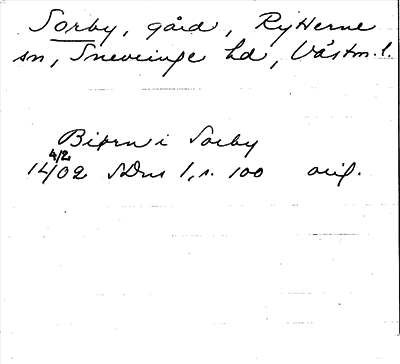 Sorby, gård, Rytterne
sn, Snevringe hd, Västm. l.
Biørn i Sorby
4/2
1402 SDns 1, s. 100 orig.